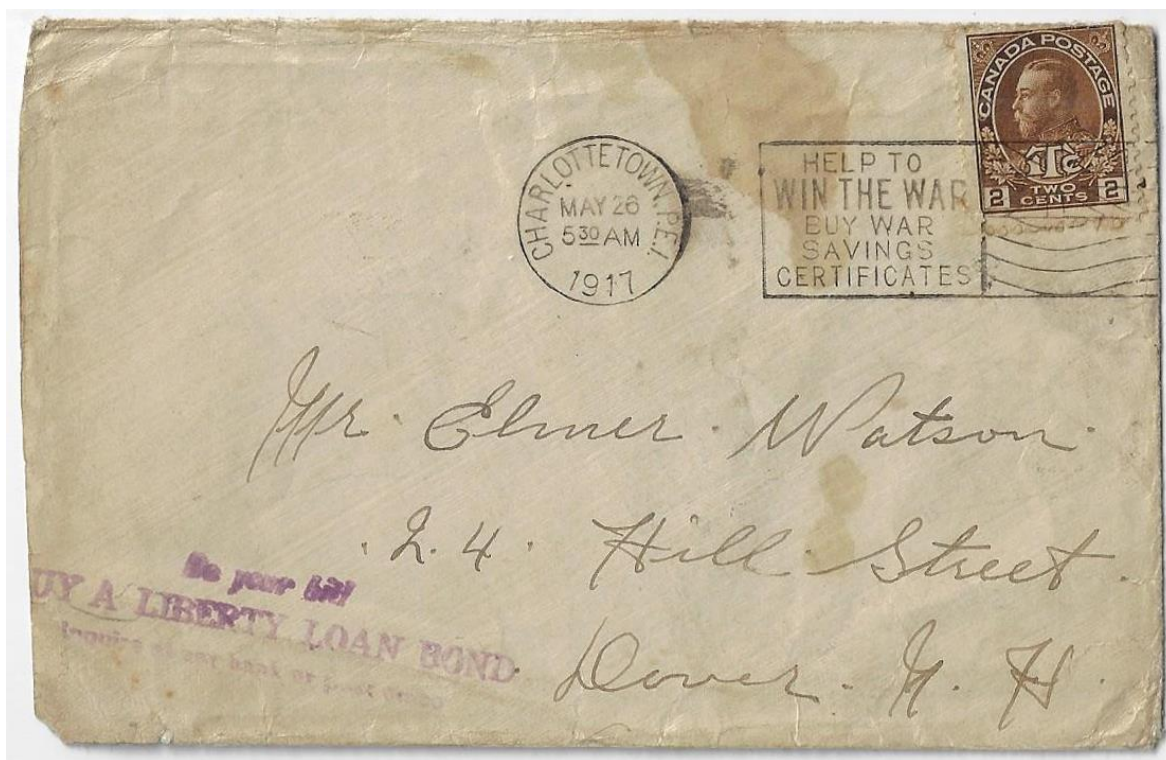 CANADA POSTAGE
1TC
2 TWO CENTS 2
CHARLOTTETOWN, P.E.I.
MAY 26
5 30 AM
1917
HELP TO
WIN THE WAR
BUY WAR
SAVINGS
CERTIFICATES
Mr. Elmer Watson.
. 24. Hill Street.
Dover. N. H.
Do your bit!
UY A LIBERTY LOAN BOND
Inquire at any bank or post office